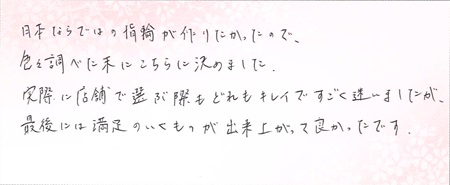 日本ならではの指輪が作りたかったので、
色々調べた末にこちらに決めました.
実際に店舗で選ぶ際もどれもキレイですごく迷いましたが、
最後には満足のいくものが出来上がって良かったです.